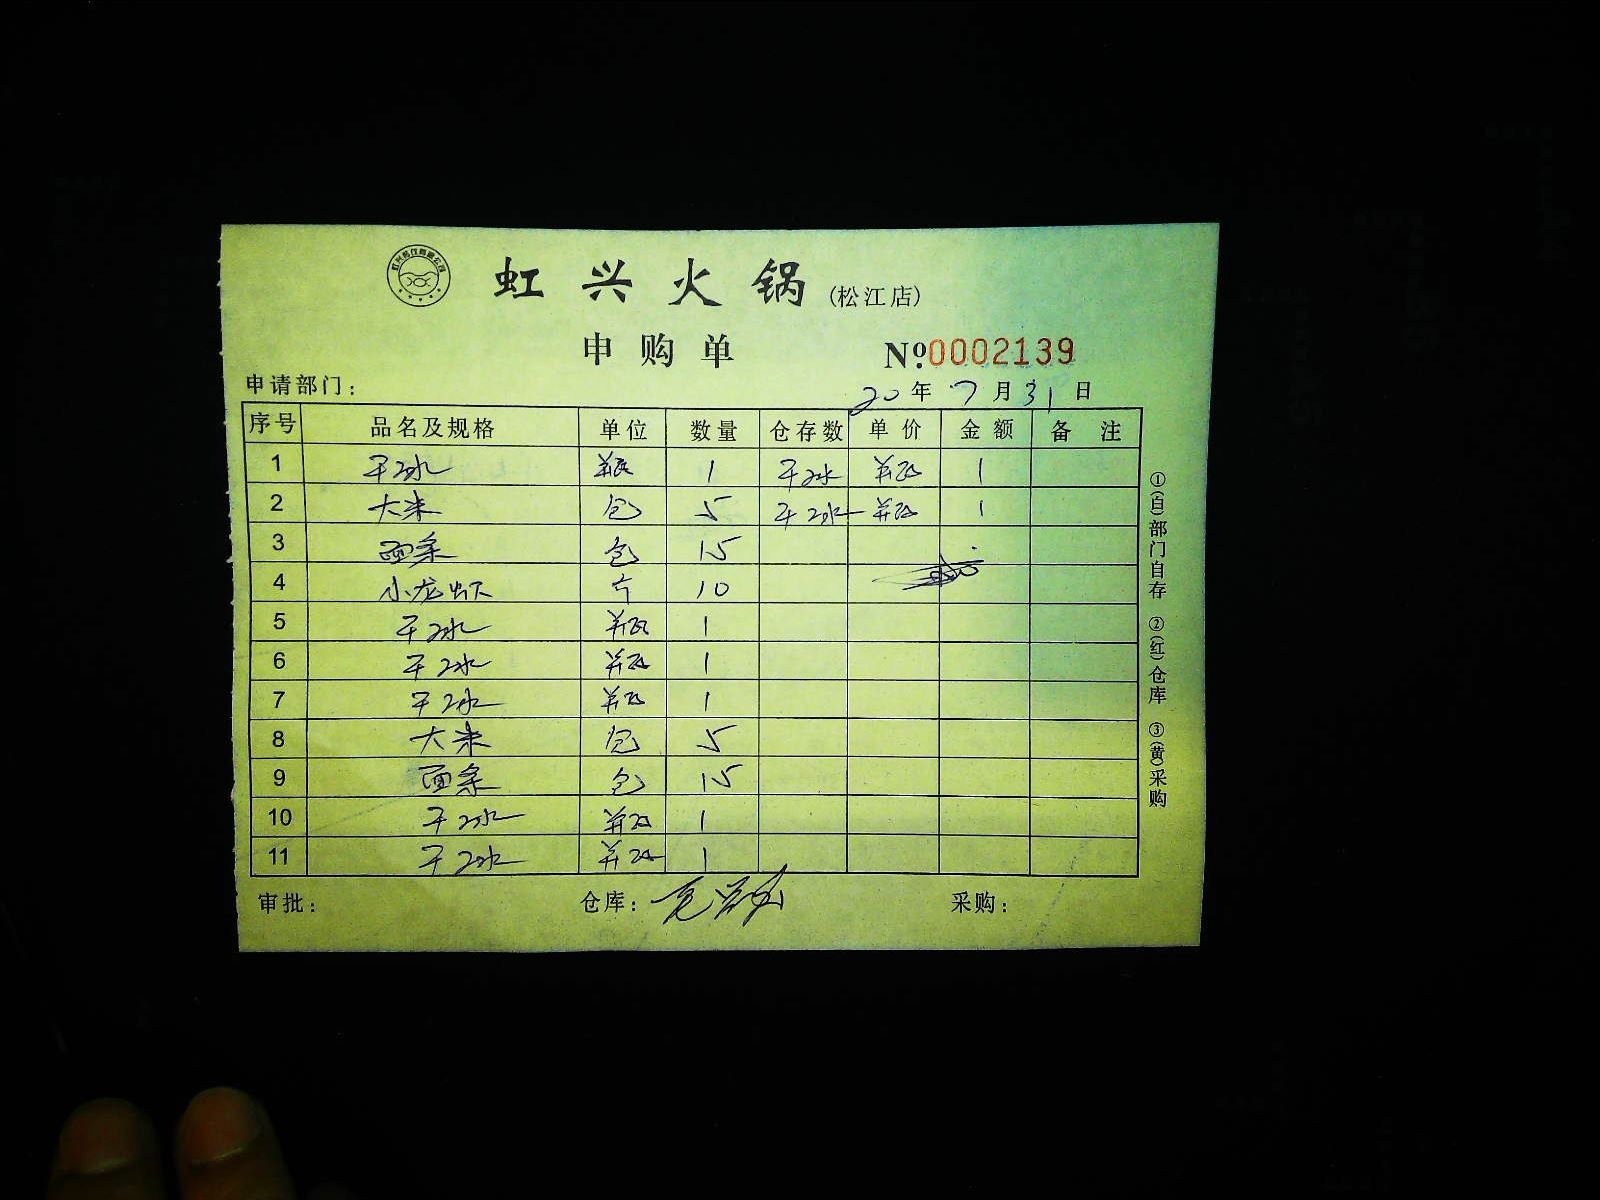 虹兴火锅(松江店)
申购单 №0002139
申请部门: 20年7月31日
序号 品名及规格 单位 数量 仓存数 单价 金额 备注
1 干冰 瓶 1 干冰 瓶 1
2 大米 包 5 干冰 瓶 1
3 面条 包 15
4 小龙虾 10
5 干冰 瓶 1
6 干冰 瓶 1
7 干冰 瓶 1
8 大米 包 5
9 面条 包 15
10 干冰 瓶 1
11 干冰 瓶 1
审批: 仓库: 采购:
①(白)部门自存 ②(红)仓库 ③(黄)采购